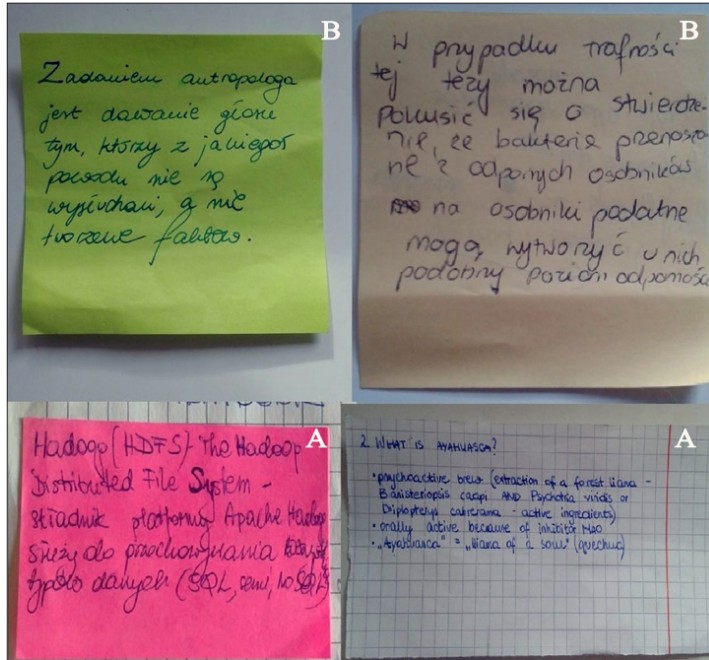 B
Zadaniem antropologa
jest dawanie głosu
tym, którzy z jakiegoś
powodu nie są
wysłuchani, a nie
tworzenie faktów.
B
W przypadku trafności
tej tezy można
pokusić się o stwierdze-
nie, że bakterie przenoszo
ne z odpornych osobników
na osobniki podatne
mogą wytworzyć u nich
podobny poziom odporności
A
Hadoop (HDFS)- The Hadoop
Distributed File System -
składnik platformy Apache Hadoop
służy do przechowywania
typów danych (SQL, semi, no SQL)
A
2. WHAT IS AYAHUASCA?
• psychoactive brew (extraction of a forest liana -
Banisteriopsis caapi AND Psychotria viridis or
Diplopterys cabrerana - active ingredients)
• orally active because of inhibitor MAO
• „Ayahuasca" = „liana of a soul" (quechua)